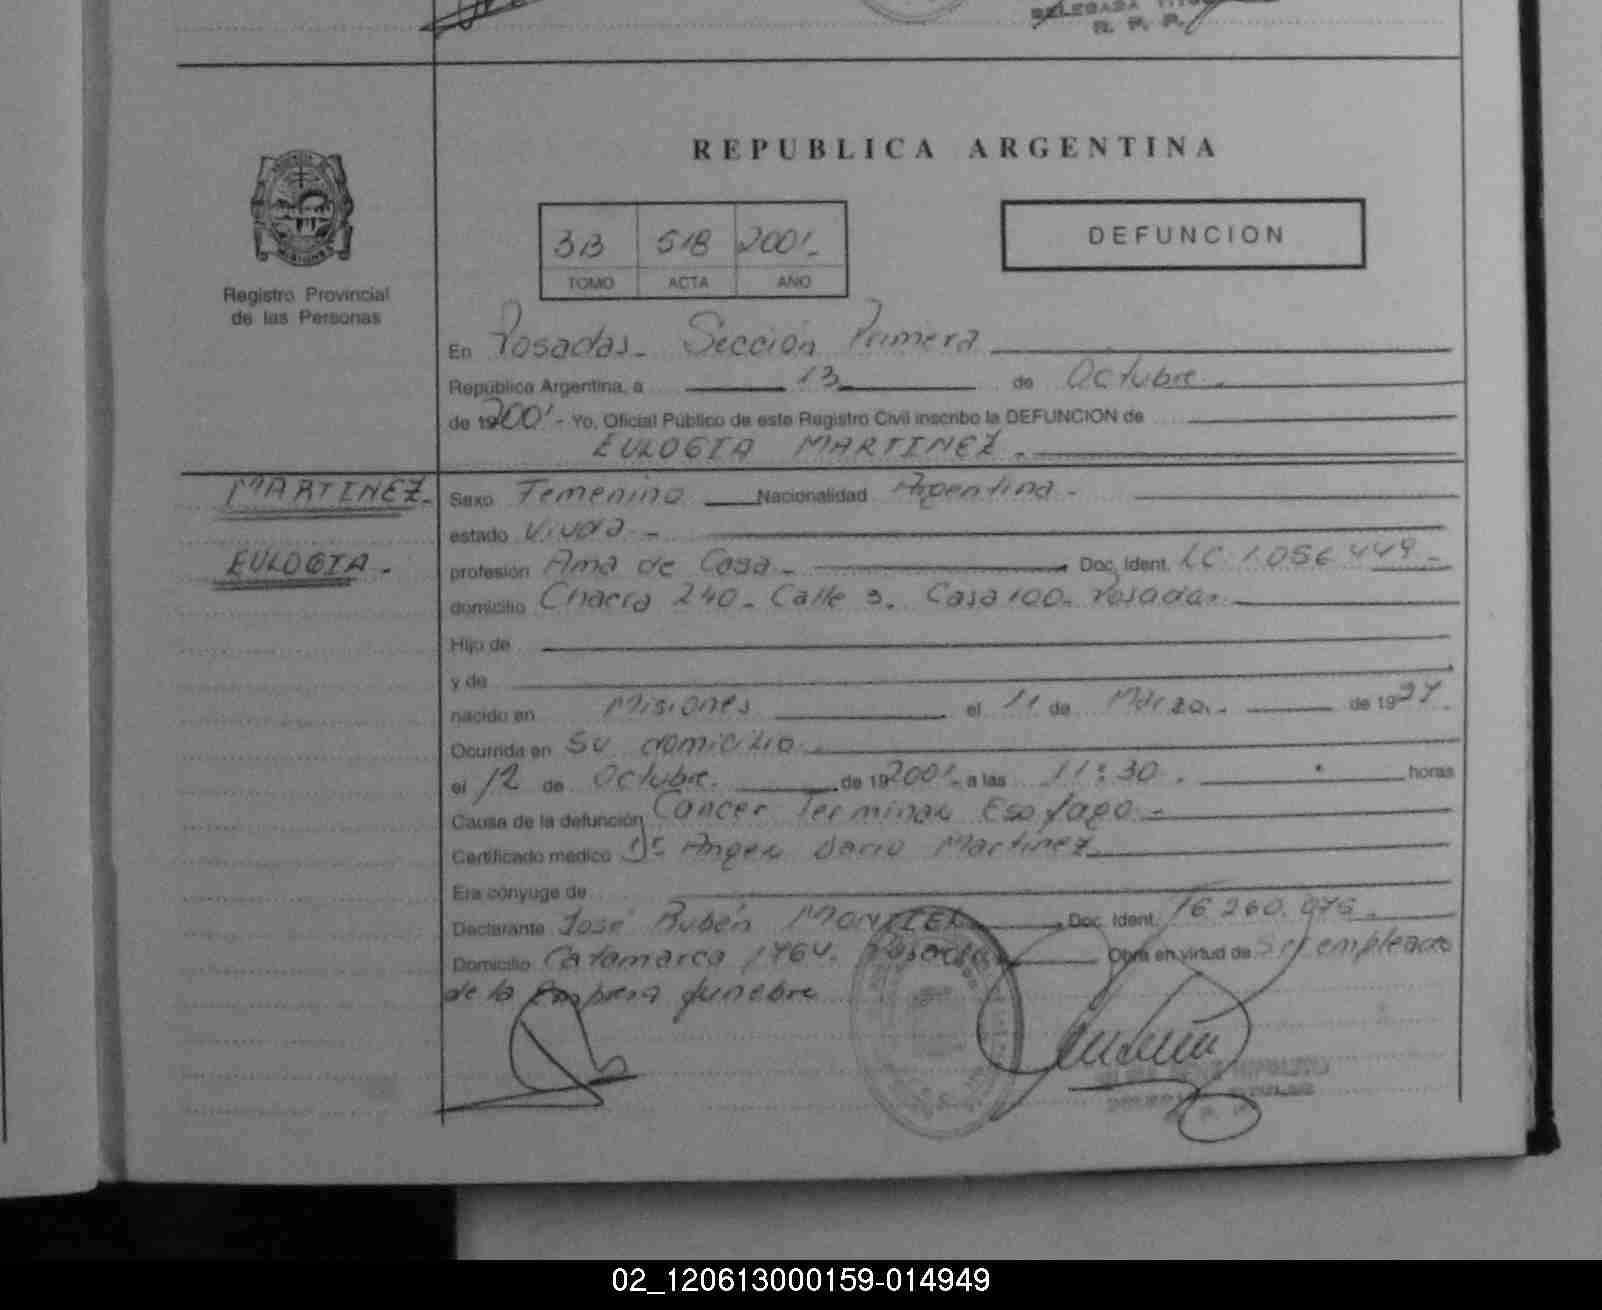 DELEGADA TITULAR
R. P. P.
REPUBLICA ARGENTINA
3B 518 2001.-
TOMO ACTA AÑO
DEFUNCION
Registro Provincial
de las Personas
En Posadas. Sección Primera
República Argentina, a 13 de Octubre.
de 19 2001.- Yo, Oficial Público de este Registro Civil inscribo la DEFUNCION de
EULOGIA MARTINEZ.
MARTINEZ.
EULOGIA.-
Sexo Femenino Nacionalidad Argentina.-
estado Viuda.-
profesión Ama de Casa.- Doc. Ident. LC 1.056.449.-
domicilio Chacra 240. Calle 3. Casa 100. Posadas.
Hijo de
y de
nacido en Misiones el 11 de Marzo.- de 1927.
Ocurrida en Su domicilio.
el 12 de Octubre. de 19 2001.- a las 11:30. horas
Causa de la defunción Cancer Terminal Esofago.-
Certificado medico Dr. Angel Dario Martinez
Era cónyuge de
Declarante José Rubén MONTIEL Doc. Ident. 16.260.076.
Domicilio Catamarca 1764. Posadas Obra en virtud de Ser empleado
de la Empresa funebre
02_120613000159-014949